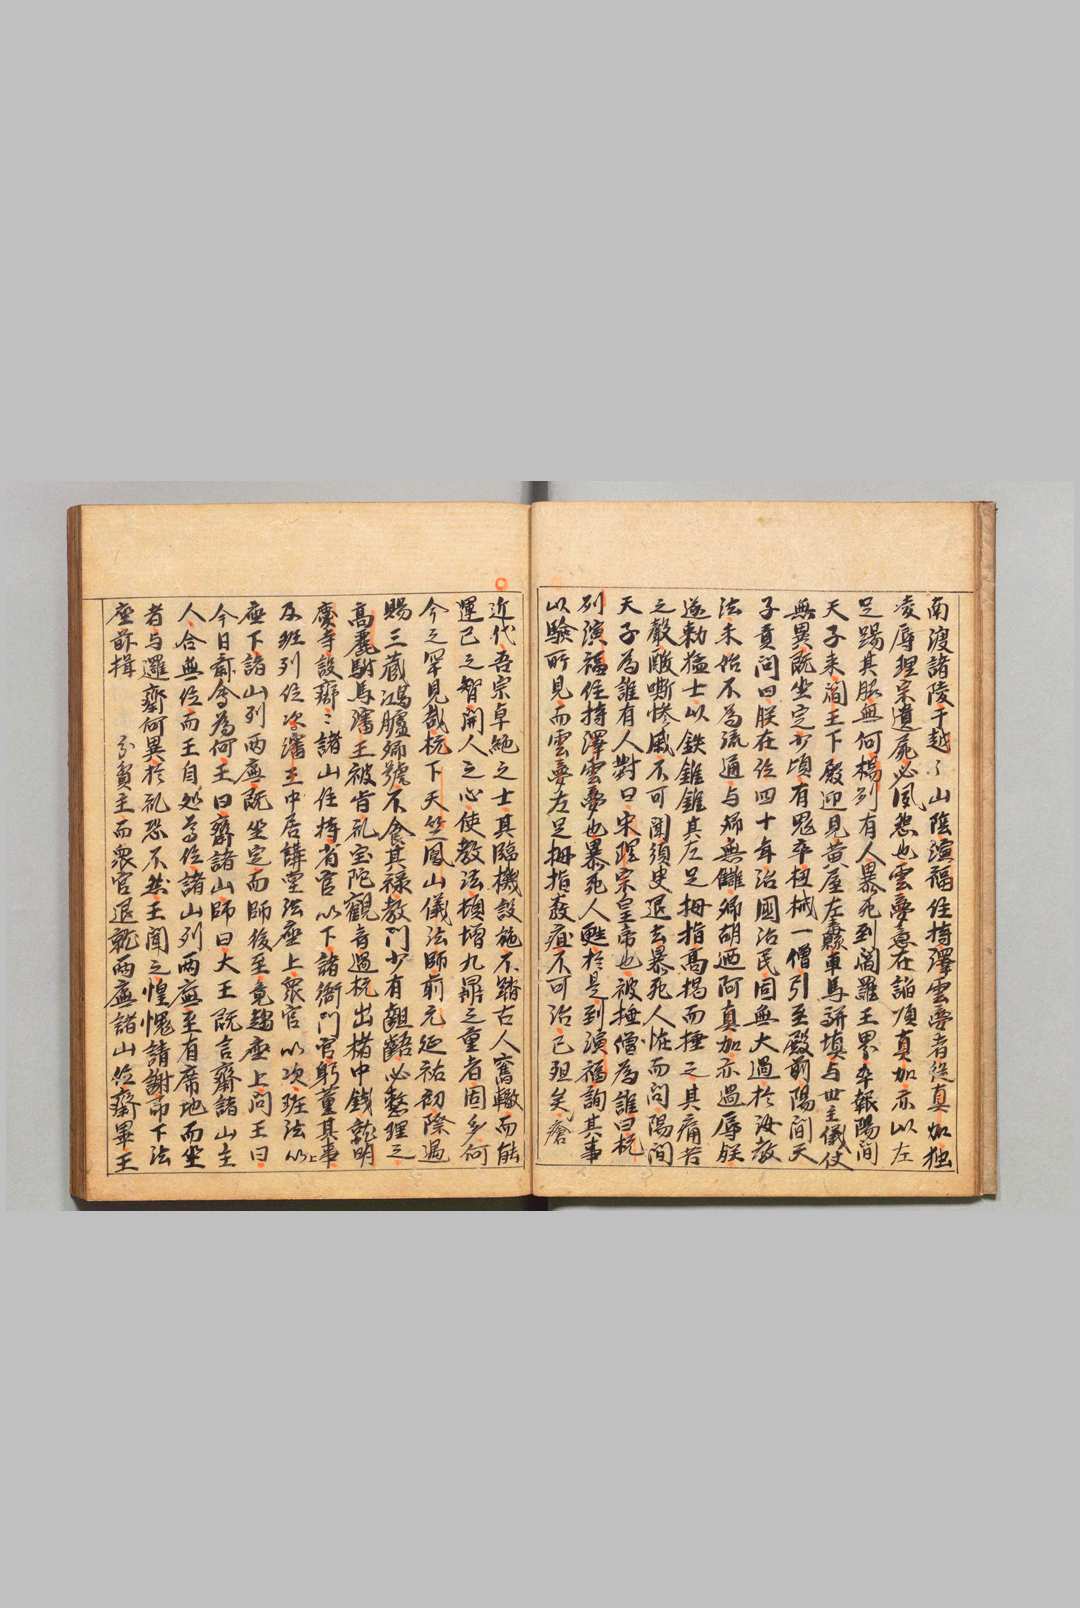 南渡諸陵于越〻山陰演福住持澤雲夢者從真加独
凌辱理宗遺屍必夙怨也雲夢意在諂順真加亦以左
足踢其股無何楊列有人暴死到閻羅王界卒報陽間
天子来閻王下殿迎見黄屋左纛車馬駢填与世主儀仗
無異既坐定少頃有鬼卒杻械一僧引至殿前陽間天
子責問曰朕在位四十年治國治民固無大過於汝教
法未始不為流通与卿無讎卿胡迺阿真加亦過辱朕
遂勅猛士以鉄錐錐其左足拇指高掲而捶之其痛苦
之聲酸嘶惨戚不可聞須臾退去暴死人恠而問陽間
天子為誰有人對曰宋理宗皇帝也被捶僧為誰曰杭
列演福住持澤雲夢也暴死人甦於是到演福詢其事
以驗所見而雲夢左足拇指發疽不可治已殂矣瘡
近代吾宗卓絶之士其臨機設施不踏古人舊轍而能
運已之智開人之心使教法增九鼎之重者固多何
今之罕見哉杭下天竺鳳山儀法師前元延祐初際遇
賜三蔵鴻臚卿號不食其禄教門少有齟齬必整理之
高麗駙馬瀋王被旨礼宝陀觀音過杭出楮中錢就明
慶寺設齋〻諸山住持省官以下諸衙門官躬董其事
及班列位次瀋王中居講堂法座上衆官以次班法以上
座下諸山列両廡既坐定而師後至竟趨座上問王曰
今日齋會為何王曰齋諸山師曰大王既言齋諸山主
人合無位而王自処尊位諸山列両廡至有席地而坐
者与邏齋何異於礼恐不然王聞之惶愧請謝而下法
座前揖 分賓主而衆官退就両廡諸山位齋畢王